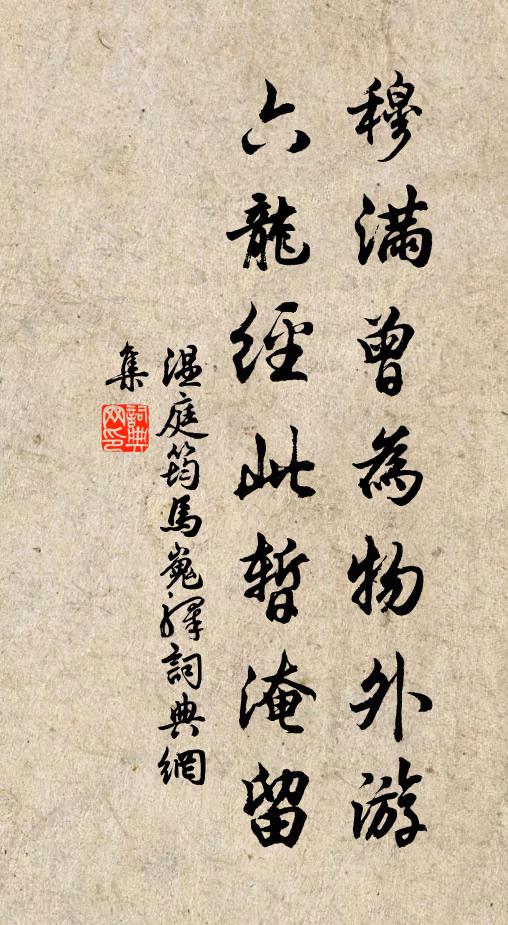 穆满曾為物外游
六龍經此暫淹留
温庭筠馬嵬驛詞典網
集
詞典網印